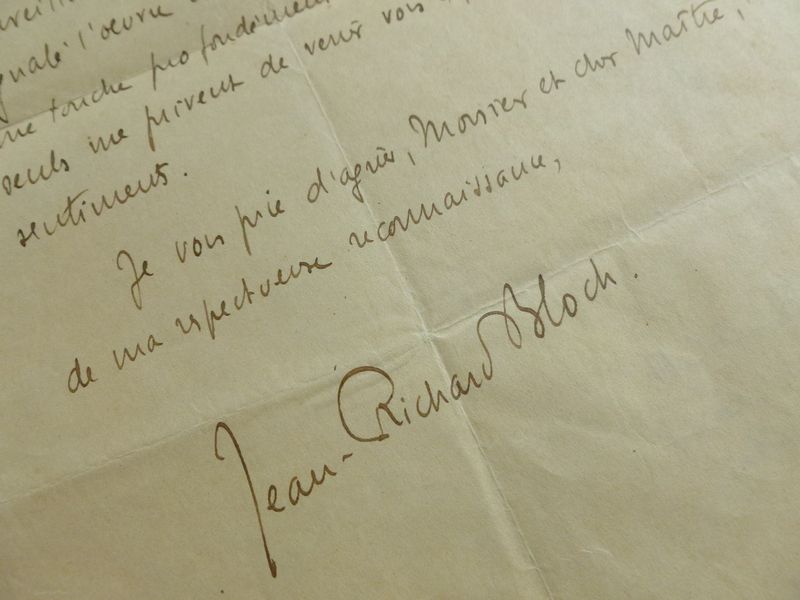 l'oeuvre
me touche profondément
seuls me privent de venir vous
sentiments.
Je vous prie d'agréer, Monsieur et cher Maître,
de ma respectueuse reconnaissance,
Jean-Richard Bloch.